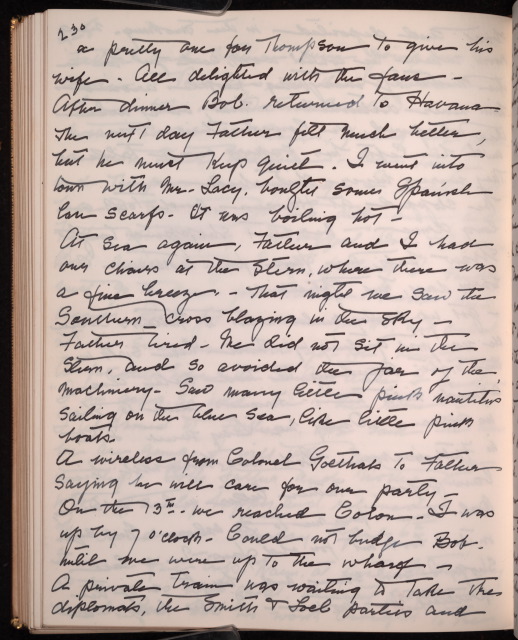 230
a pretty one for Thompson to give his
wife - All delighted with the fans -
After dinner Bob. returned to Havana
The next day Father felt much better,
but he must keep quiet. I went into
town with Mr. Lacy, bought some Spanish
lace scarfs - It was boiling hot -
At sea again, Father and I had
our chairs at the stern, where there was
a fine breeze. - That night we saw the
Southern Cross blazing in the sky -
Father tired - We did not sit in the
stern, and so avoided the jar of the
machinery - Saw many little pink nautilus
sailing on the blue sea, like little pink
boats.
A wireless from Colonel Goethals to Father
saying he will care for our party -
On the 13th - we reached Colon - I was
up by 7 o'clock - Could not budge Bob -
until we were up to the wharf -
A private train was waiting to take the
diplomats, the Smith & Loeb parties and